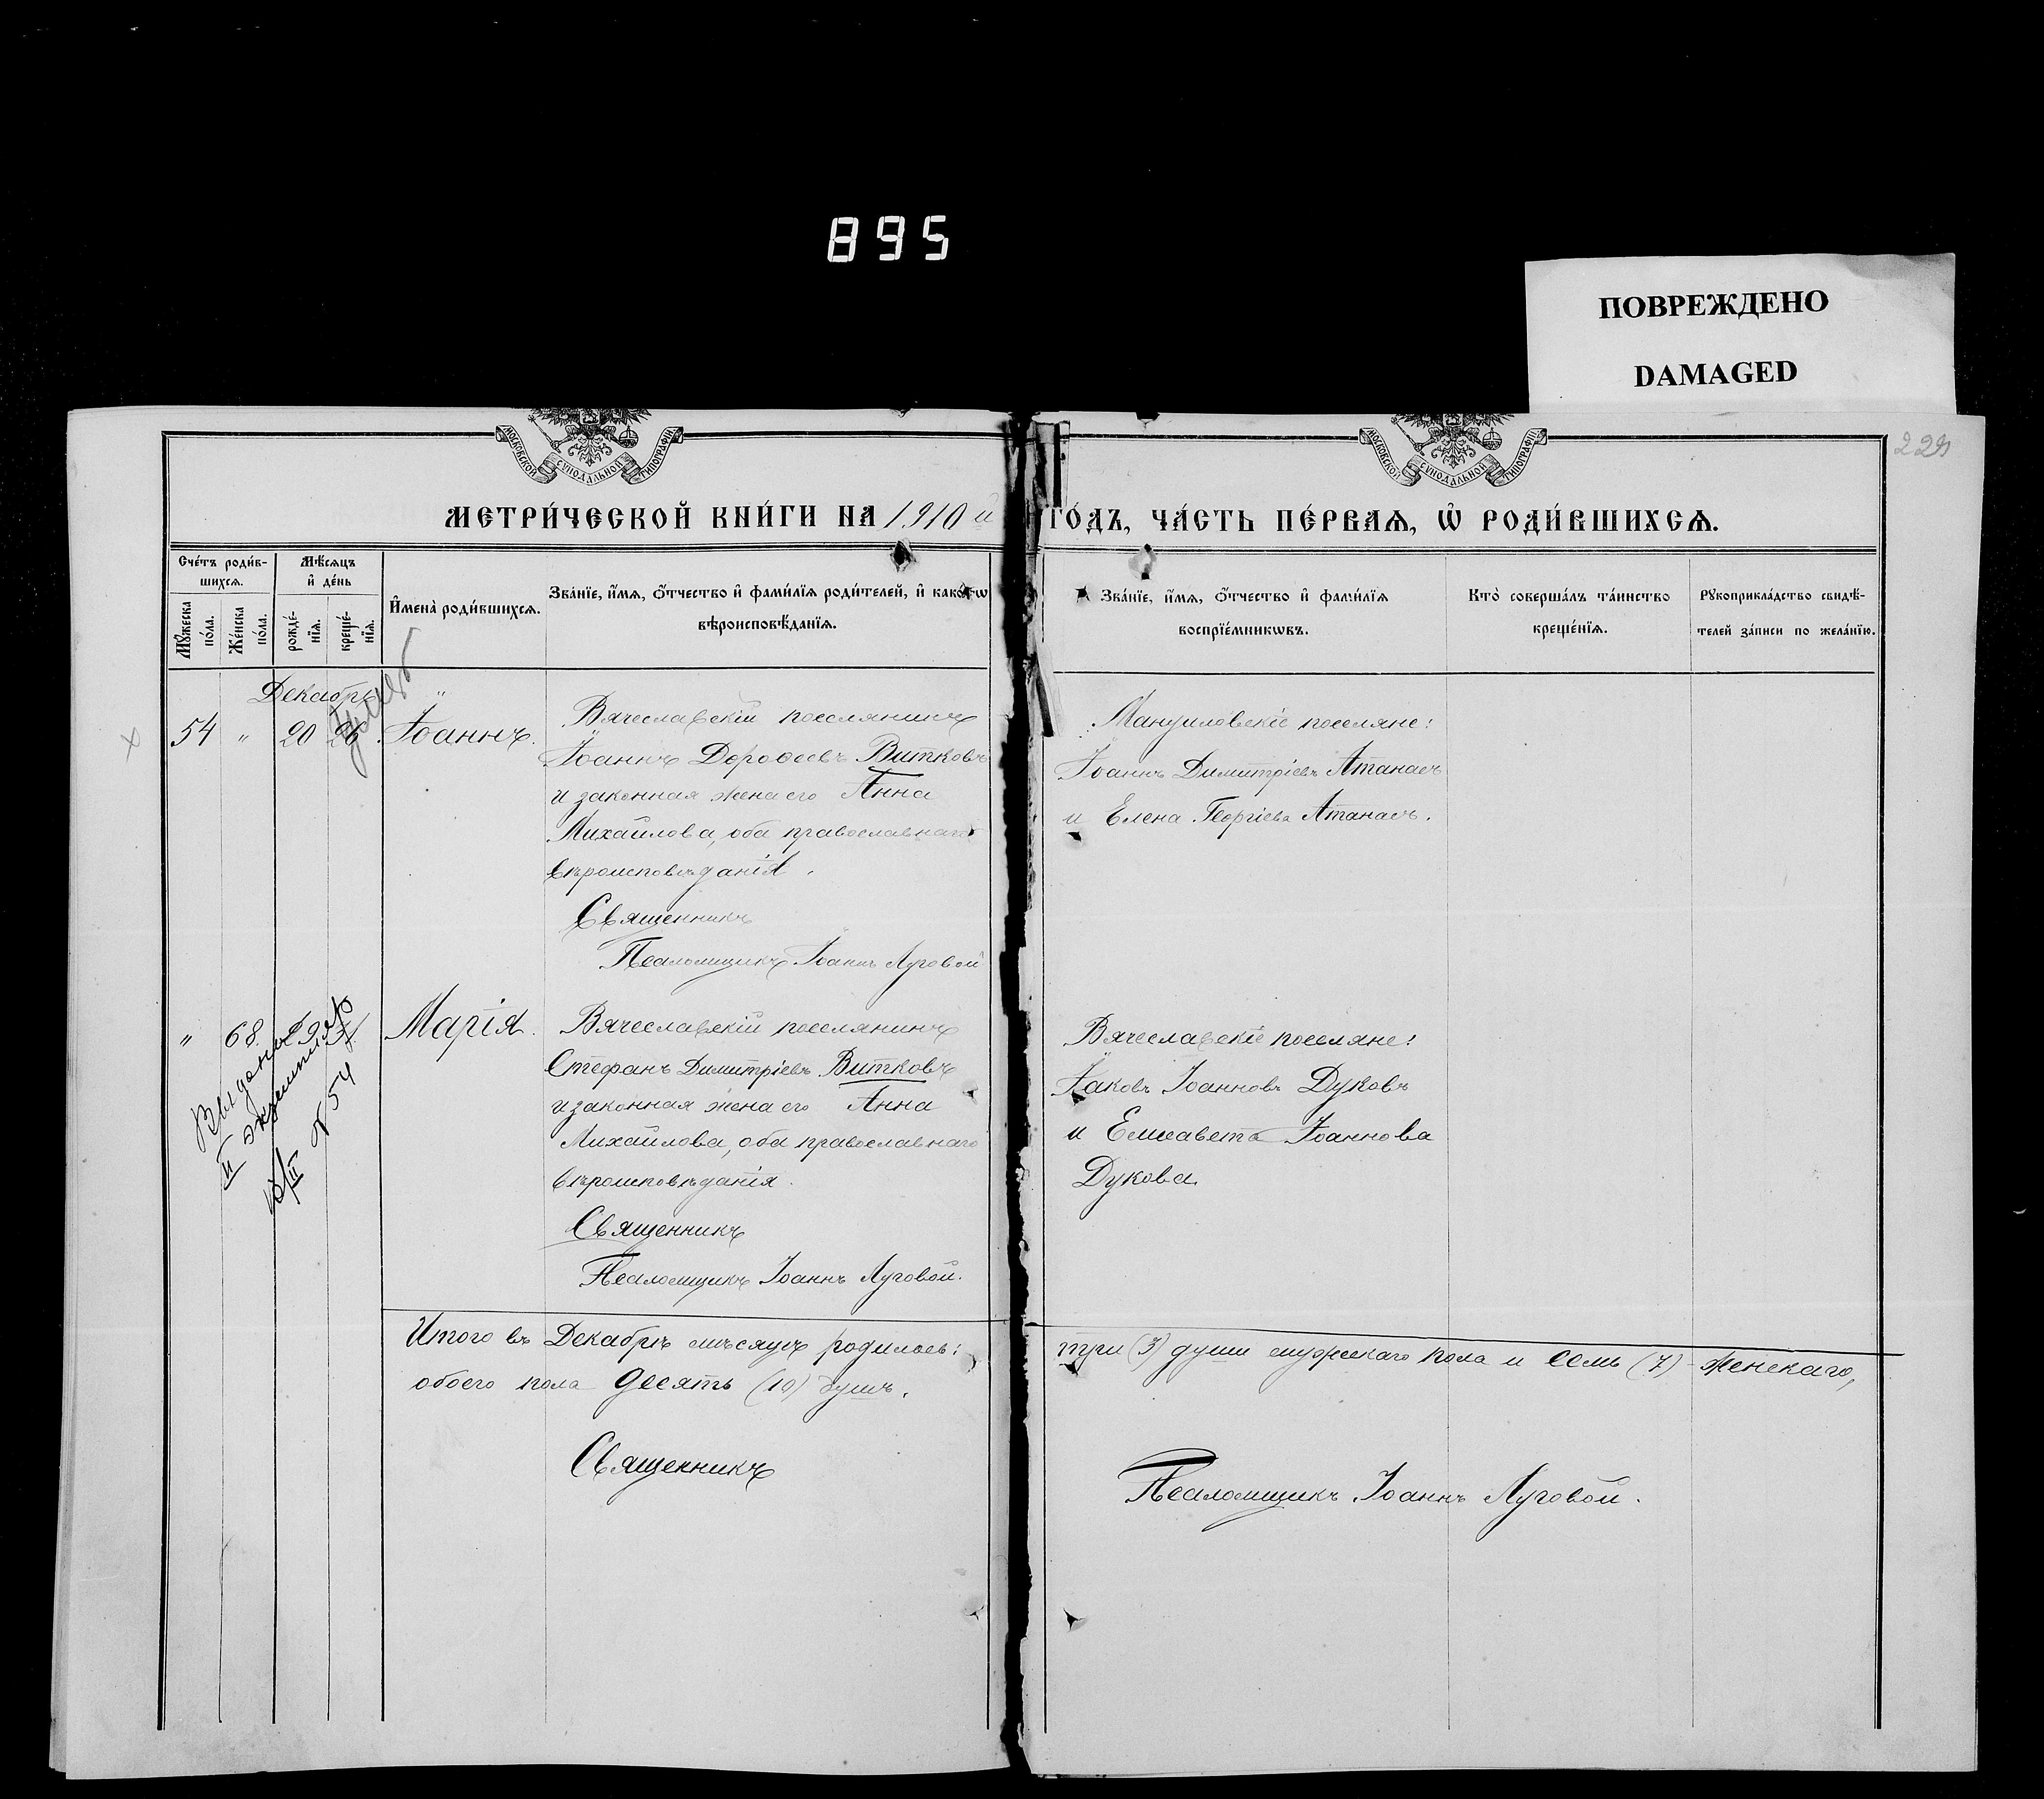 895
ПОВРЕЖДЕНО
DAMAGED
МОСКОВСКОЙ СУНОДАЛЬНОЙ ТИПОГРАФІИ
МОСКОВСКОЙ СУНОДАЛЬНОЙ ТИПОГРАФІИ
МЕТРИ́ЧЕСКОЙ КНИ́ГИ НА 1910 й
ГО́ДЪ, ЧА́СТЬ ПЕ́РВАѦ, Ѡ҆ РОДИ́ВШИХСѦ.
Сче́тъ роди́в-
шихсѧ.
Мꙋ́жеска по́ла.
Же́нска по́ла.
Мѣ́сѧцъ
и҆ де́нь
рожде́-
нїѧ.
креще́-
нїѧ.
И҆мена̀ роди́вшихсѧ.
Зва́нїе, и҆́мѧ, ѻ҆́тчество и҆ фами́лїѧ роди́телей, и҆ како́гѡ
вѣроисповѣ́данїѧ.
Зва́нїе, и҆́мѧ, ѻ҆́тчество и҆ фами́лїѧ
воспрїе́мникѡвъ.
Кто̀ соверша́лъ та́инство
креще́нїѧ.
Рꙋкоприкла́дство свидѣ́-
телей за́писи по жела́нїю.
Декабрь
54 " 20 26 Іоаннъ.
Вячеславскій поселянинъ
Іоаннъ Дороѳеевъ Витковъ
и законная жена его Анна
Михайлова, оба православнаго
вѣроисповѣданія.
Священникъ
Псаломщикъ Іоаннъ Луговой
Мануиловскіе поселяне:
Іоаннъ Димитріевъ Атанасъ
и Елена Георгіева Атанасъ.
" 68. 29 Марія.
Выданъ
II экземпляр
№ 54
Вячеславскій поселянинъ
Стефанъ Димитріевъ Витковъ
и законная жена его Анна
Михайлова, оба православнаго
вѣроисповѣданія.
Священникъ
Псаломщикъ Іоаннъ Луговой.
Вячеславскіе поселяне:
Іаковъ Іоанновъ Дуковъ
и Елисавета Іоаннова
Дукова.
Итого въ Декабрѣ мѣсяцѣ родилось: три (3) души мужескаго пола и семь (7) женскаго,
обоего пола десять (10) душъ.
Священникъ
Псаломщикъ Іоаннъ Луговой.